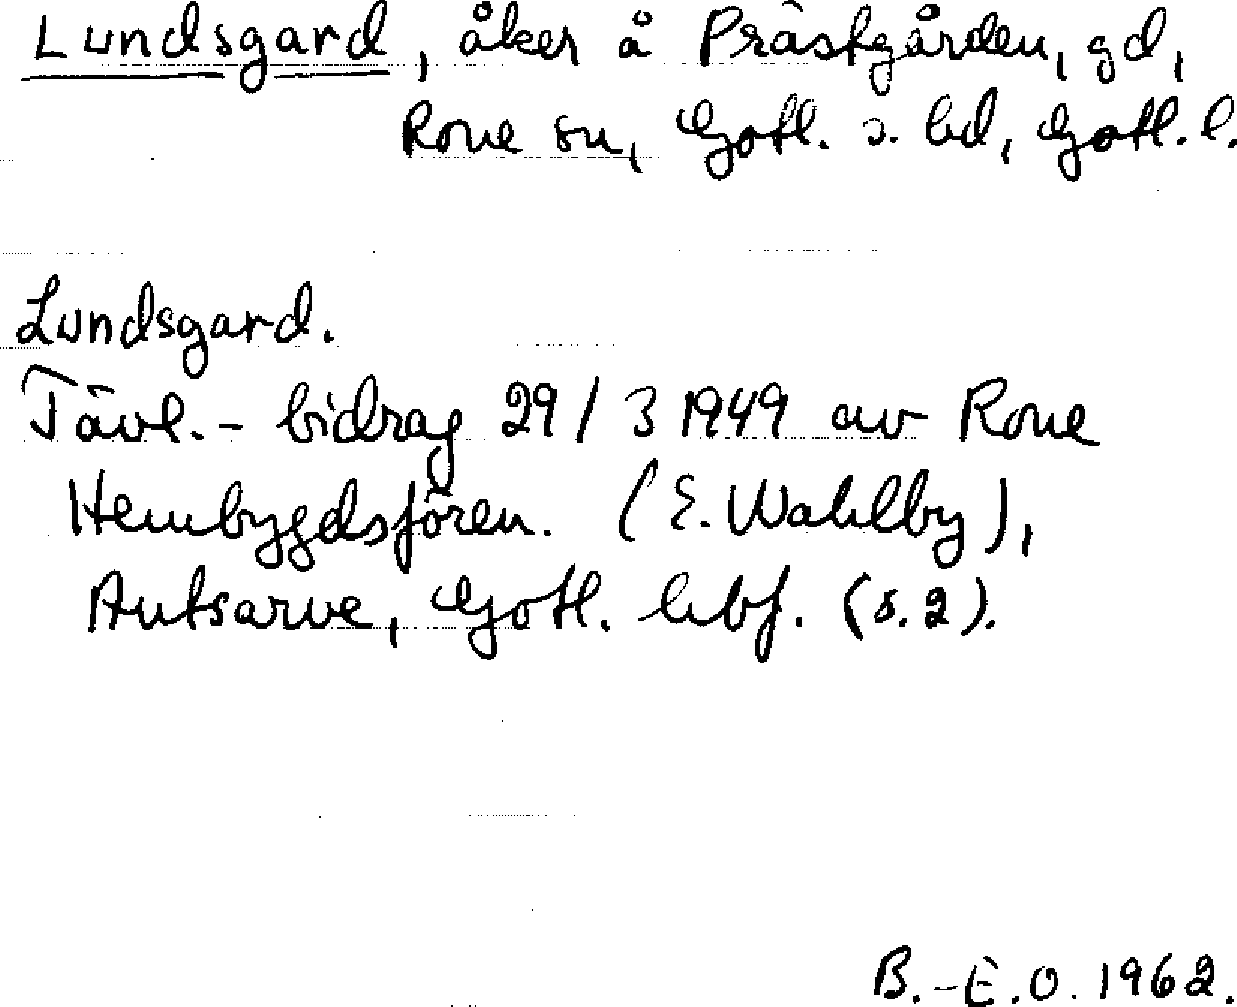 Lundsgard, åker å Prästgården, gd,
Rone sn, Gotl. s. hd, Gotl. l.
Lundsgard.
Tävl.- bidrag 29/3 1949 av Rone
Hembygdsfören. (E. Wahlby),
Autsarve, Gotl. hbf. (s. 2).
B.-E.O. 1962.